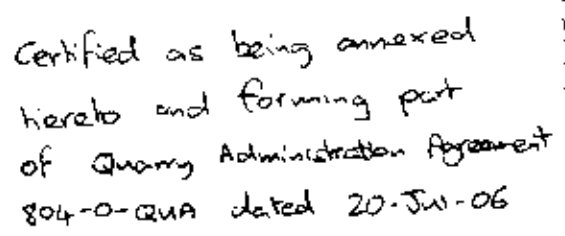 Certified as being annexed
hereto and forming part
of Quarry Administration Agreement
804-0-QUA dated 20-Jul-06